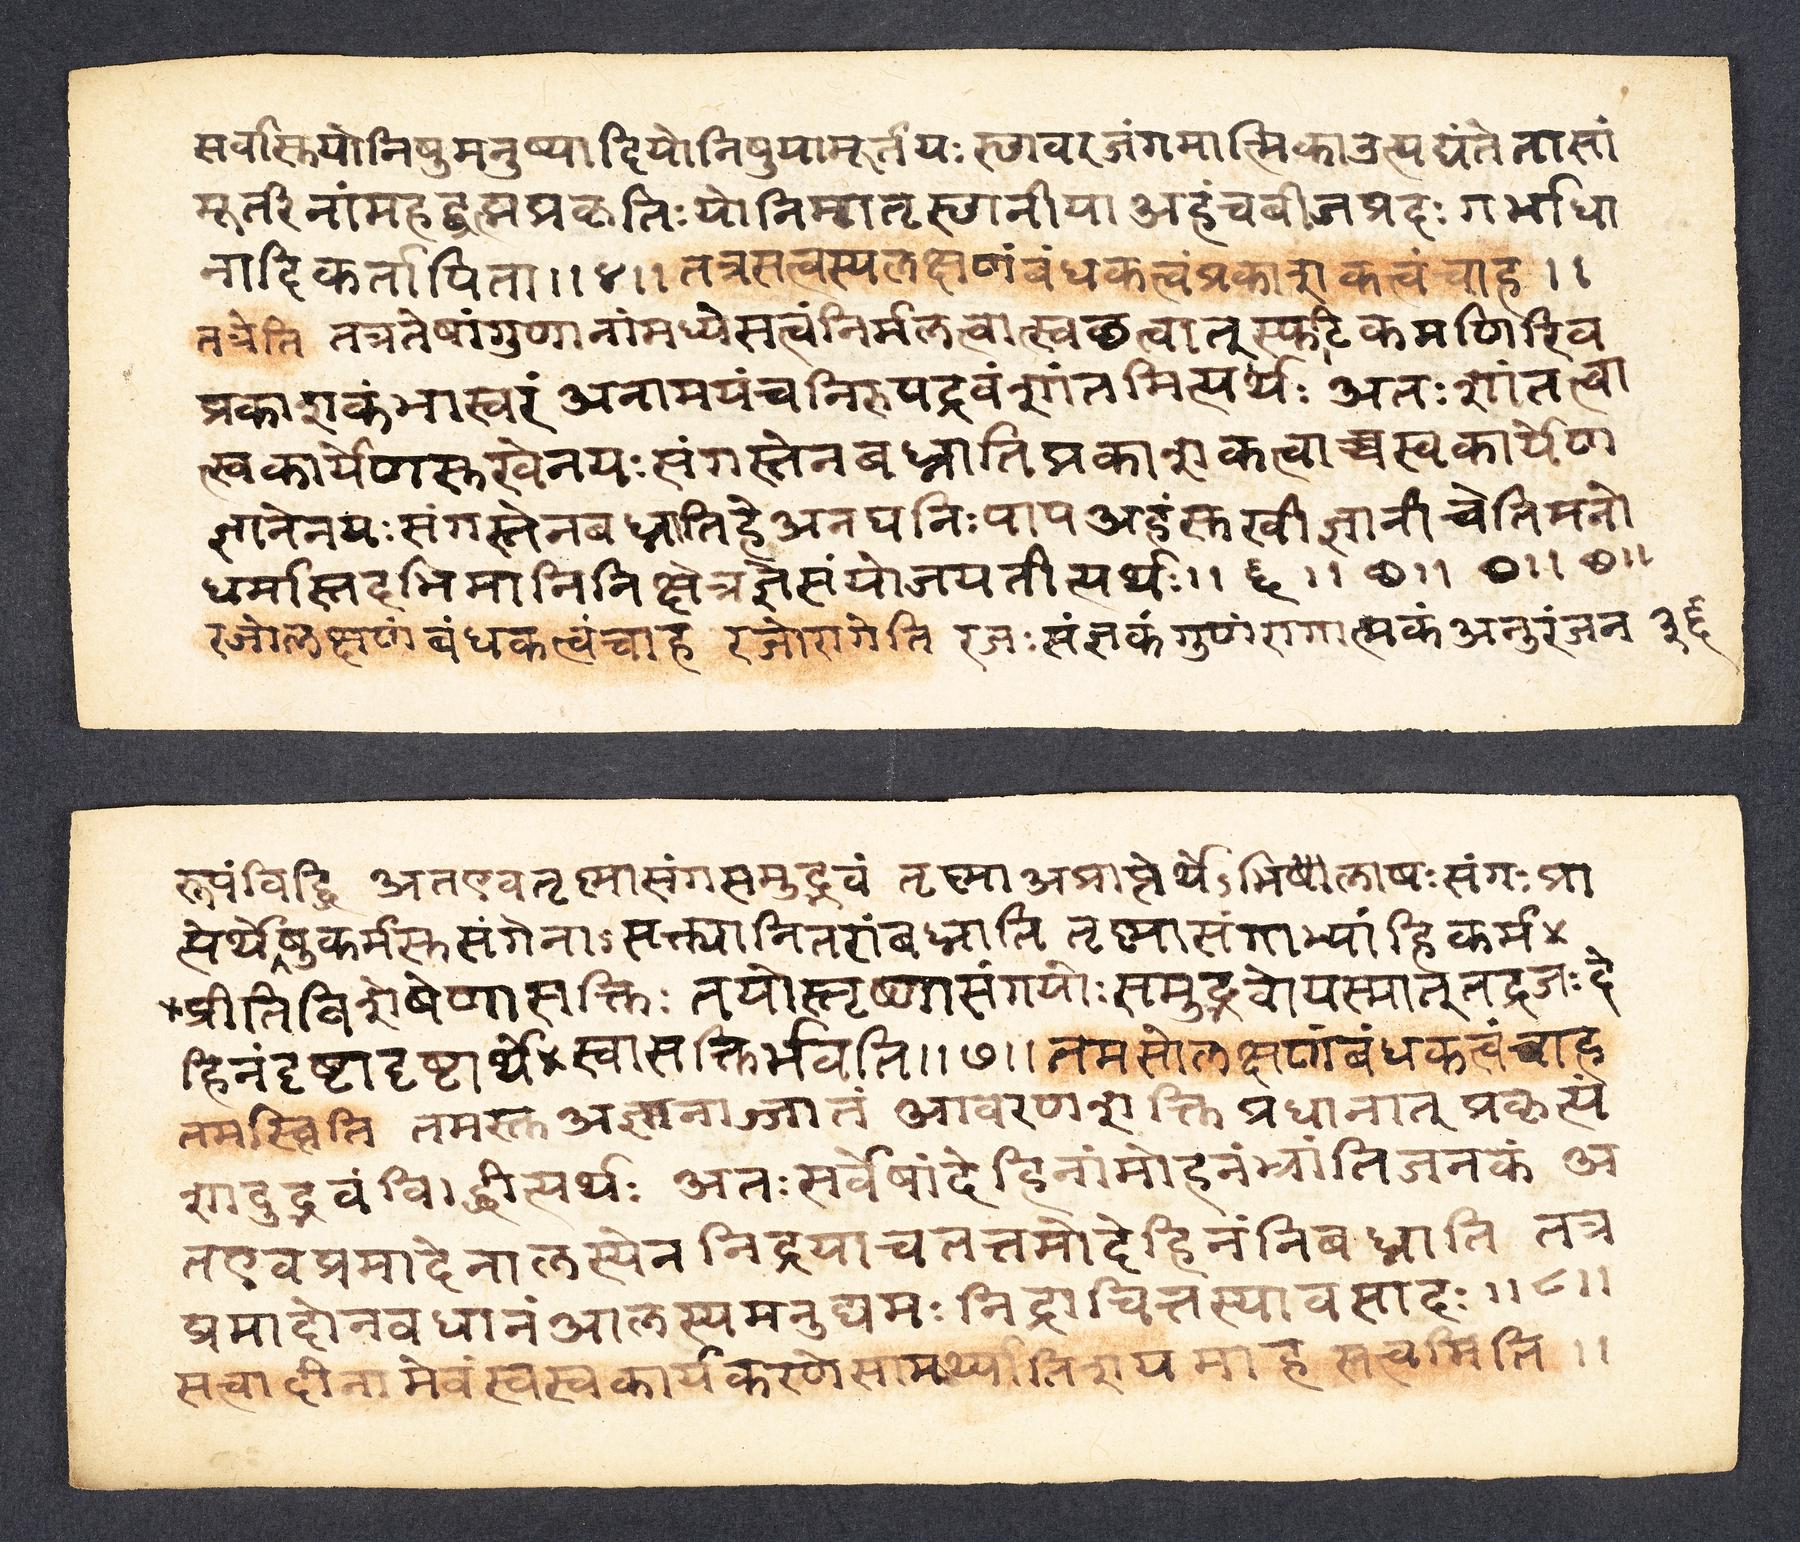 सर्वास्तयोनिषुमनुष्यादियोनिषुयामूर्तयः स्छावरजंगमात्मिकाउत्पद्यंतेतासां
मूर्तीनांमहद्ब्रह्मप्रकृतिःयोनिमातृस्छानीया अहंचबीजप्रदः गर्भाधा
नादिकर्तापिता।।४।। तत्रसत्वस्यलक्षणंबंधकत्वंप्रकाशकत्वंचाह ।।
तत्रेति तत्रतेषांगुणानांमध्येसत्वंनिर्मलत्वात्स्वछत्वात् स्फटिकमणिरिव
प्रकाशकंभास्वरं अनामयंचनिरुपद्रवंशांतमित्यर्थः अतःशांतत्वा
त्स्वकार्येणस्तखेनयःसंगस्तेनबध्नातिप्रकाशकत्वाच्चस्वकार्येण
ज्ञानेनयःसंगस्तेनबध्नातिहेअनघनिःपाप अहंस्तखीज्ञानीचेतिमनो
धर्मास्तिदभिमानिनिक्षेत्रज्ञेसंयोजयतीत्यर्थः।। ६ ।। ०।। ०।। ०।।
रजोलक्षणंबंधकत्वंचाह रजोरागेति रजःसंज्ञकंगुणंरागात्मकंअनुरंजन
रूपंविद्धि अतएवतृष्णासंगसमुद्भवं तृष्णाअप्राप्तेर्थेऽभिलाषःसंगःप्रा
प्तेर्थेषुकर्मस्तसंगेनाऽसक्त्यानितरांबध्नाति तृष्णासंगाभ्यांहिकर्म×
×प्रीतिविशेषेणासक्तिः तयोस्तृष्णासंगयोःसमुद्भवोयस्मात्तद्रजःदे
हिनंदृष्टादृष्टार्थे×स्वासक्तिर्भवति।।७।। तमसोलक्षणंबंधकत्वंचाह
तमस्त्विति तमस्तअज्ञानाज्जातं आवरणशक्तिप्रधानात् प्रकृत्यं
शादुद्भवंविद्धीत्यर्थः अतःसर्वेषांदेहिनांमोहनंभ्रांतिजनकं अ
तएवप्रमादेनालस्येननिद्रयाचतत्तमोदेहिनंनिबध्नाति तत्र
प्रमादोनवधानंआलस्यमनुद्यमः निद्राचित्तस्यावसादः ।।८।।
सत्वादीनामेवंस्वस्वकार्यकरणेसामर्थ्यातिशयमाह सत्वमिति ।।